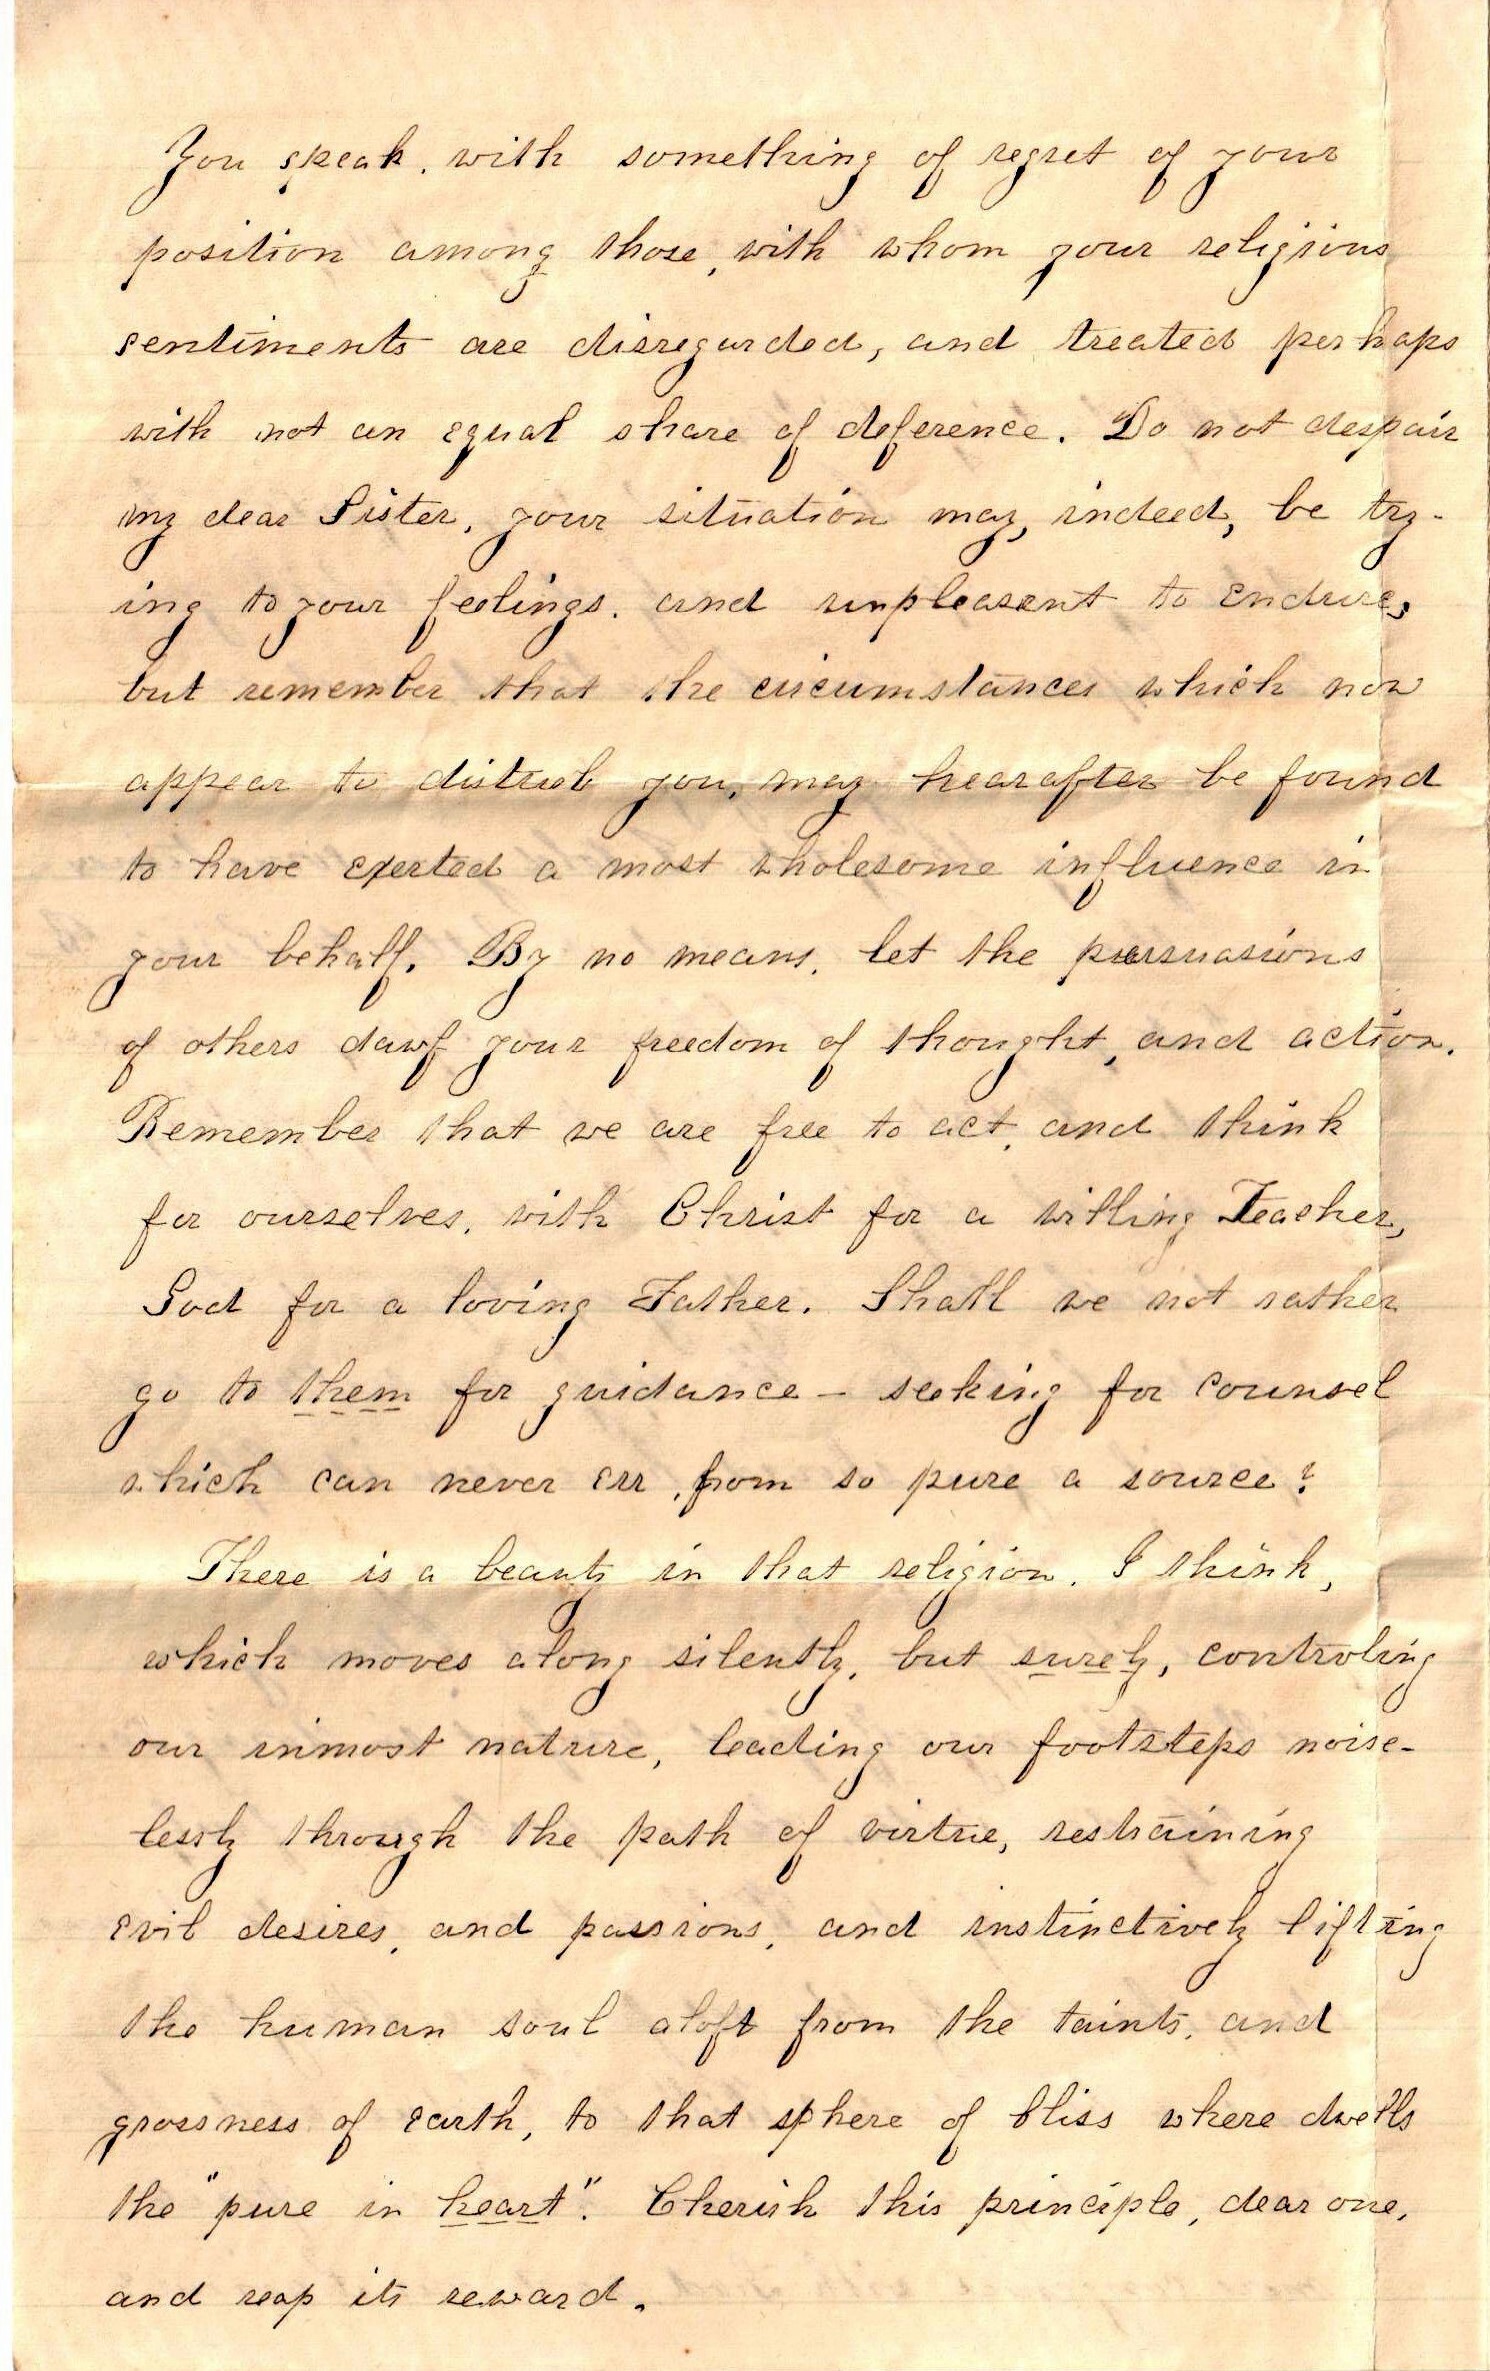 You speak, with something of regret of your
position among those, with whom your religious
sentiments are disregarded, and treated perhaps
with not an equal share of deference. Do not despair
my dear Sister, your situation may, indeed, be try-
ing to your feelings, and unpleasent to endure,
but remember that the circumstances which now
appear to distrub you, may hearafter be found
to have exerted a most wholesome influence in
your behalf. By no means, let the persuasions
of others your freedom of thought, and action.
Remember that we are free to act, and think
for ourselves, with Christ for a willing Teacher,
God for a loving Father. Shall we not rather
go to them for guidance – seeking for counsel
which can never err, from so pure a source?
There is a beauty in that religion, I think,
which moves along silently, but surely, controling
our inmost nature, leading our footsteps noise-
lessly through the path of virtue, restraining
evil desires, and passions, and instinctively lifting
the human soul aloft from the taints, and
grossness of earth, to that sphere of bliss where dwells
the "pure in heart". Cherish this principle, dear one,
and reap its reward.